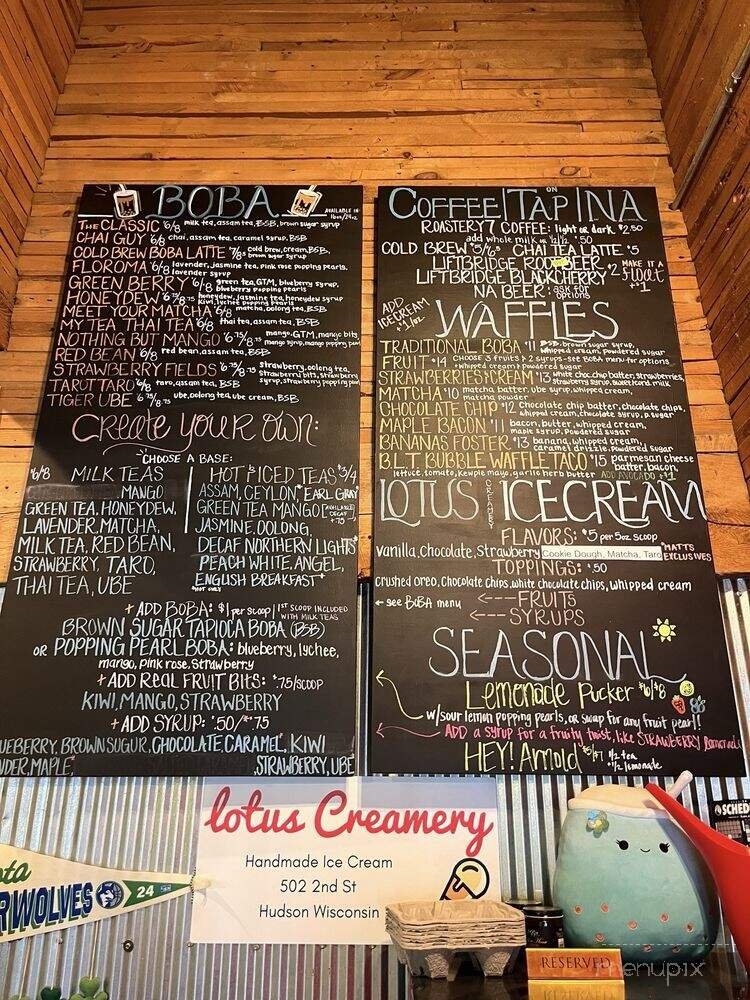 BOBA
AVAILABLE IN
16oz/24oz
THE CLASSIC 6/8 milk tea, assam tea, BSB, brown sugar syrup
CHAI GUY 6/8 chai, assam tea, caramel syrup, BSB
COLD BREW BOBA LATTE 7/8 cold brew, cream, BSB,
brown sugar syrup
FLOROMA 6/8 lavender, jasmine tea, pink rose popping pearls,
lavender syrup
GREEN BERRY 6/8 green tea, GTM, blueberry syrup,
blueberry popping pearls
HONEYDEW 6.75/8.75 honeydew, jasmine tea, honeydew syrup
kiwi, lychee popping pearls
MEET YOUR MATCHA 6/8 matcha, oolong tea, BSB
MY TEA THAI TEA 6/8 thai tea, assam tea, BSB
NOTHING BUT MANGO 6.75/8.75 mango, GTM, mango bits
mango syrup, mango popping pearl
RED BEAN 6/8 red bean, assam tea, BSB
STRAWBERRY FIELDS 6.75/8.75 strawberry, oolong tea,
strawberry bits, strawberry
syrup, strawberry popping pearl
TAROT TARO 6/8 taro, assam tea, BSB
TIGER UBE 6.75/8.75 ube, oolong tea, ube cream, BSB
Create your own:
CHOOSE A BASE:
$6/8 MILK TEAS
MANGO
GREEN TEA, HONEYDEW,
LAVENDER, MATCHA,
MILK TEA, RED BEAN,
STRAWBERRY, TARO,
THAI TEA, UBE
HOT & ICED TEAS $3/4
ASSAM, CEYLON, EARL GRAY
GREEN TEA MANGO
JASMINE, OOLONG,
DECAF NORTHERN LIGHTS*
PEACH WHITE, ANGEL,
ENGLISH BREAKFAST*
*HOT ONLY
+ ADD BOBA: $1 per scoop 1ST SCOOP INCLUDED
WITH MILK TEAS
BROWN SUGAR TAPIOCA BOBA (BSB)
OR POPPING PEARL BOBA: blueberry, lychee,
mango, pink rose, strawberry
+ ADD REAL FRUIT BITS: $.75/SCOOP
KIWI, MANGO, STRAWBERRY
+ ADD SYRUP: .50/.75
BLUEBERRY, BROWN SUGUR, CHOCOLATE, CARAMEL, KIWI
MAPLE, STRAWBERRY, UBE
COFFEE | ON TAP | NA
ROASTERY 7 COFFEE: light or dark $2.50
add whole milk or 1/2 1/2 $.50
COLD BREW $5/6 CHAI TEA LATTE $5
LIFTBRIDGE ROOTBEER
LIFTBRIDGE BLACKCHERRY $2 MAKE IT A
float
+$1
NA BEER: ask for
options
ADD
ICECREAM
WAFFLES
TRADITIONAL BOBA $11 BSB, brown sugar syrup,
whipped cream, powdered sugar
FRUIT $14 CHOOSE 3 fruits & 2 syrups - see BOBA menu for options
+whipped cream & powdered sugar
STRAWBERRIES & CREAM $12 white choc. chip batter, strawberries,
strawberry syrup, sweet cond. milk
MATCHA $10 matcha batter, ube syrup, whipped cream,
matcha powder
CHOCOLATE CHIP $12 Chocolate chip batter, chocolate chips,
whipped cream, chocolate syrup, p. sugar
MAPLE BACON $11 bacon, butter, whipped cream,
maple syrup, powdered sugar
BANANAS FOSTER $13 banana, whipped cream,
caramel drizzle, powdered sugar
B.L.T BUBBLE WAFFLE TACO $15 parmesan cheese
batter, bacon,
lettuce, tomato, kewpie mayo, garlic herb butter ADD AVOCADO +$1
LOTUS CREAMERY ICECREAM
FLAVORS: $5 per 5oz scoop
vanilla, chocolate, strawberry Cookie Dough, Matcha, Taro *MATTS
EXCLUSIVES
TOPPINGS: $.50
crushed oreo, chocolate chips, white chocolate chips, whipped cream
see BOBA menu FRUITS
SYRUPS
SEASONAL
Lemonade Pucker $6/$8
w/sour lemon popping pearls, or swap for any fruit pearl!
ADD a syrup for a fruity twist, like STRAWBERRY
HEY! Arnold $5/$7 1/2 tea
1/2 lemonade
lotus Creamery
Handmade Ice Cream
502 2nd St
Hudson Wisconsin
24
RESERVED
menupix